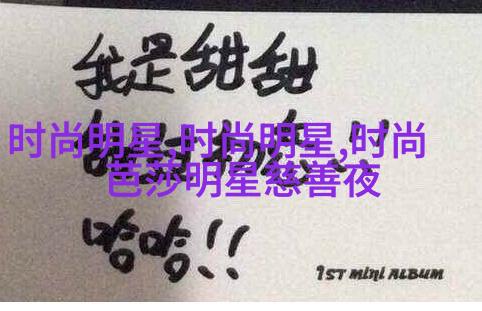 我是甜甜
时尚明星,时尚明星,时尚
芭莎明星慈善夜
哈哈!!
1ST MINI ALBUM